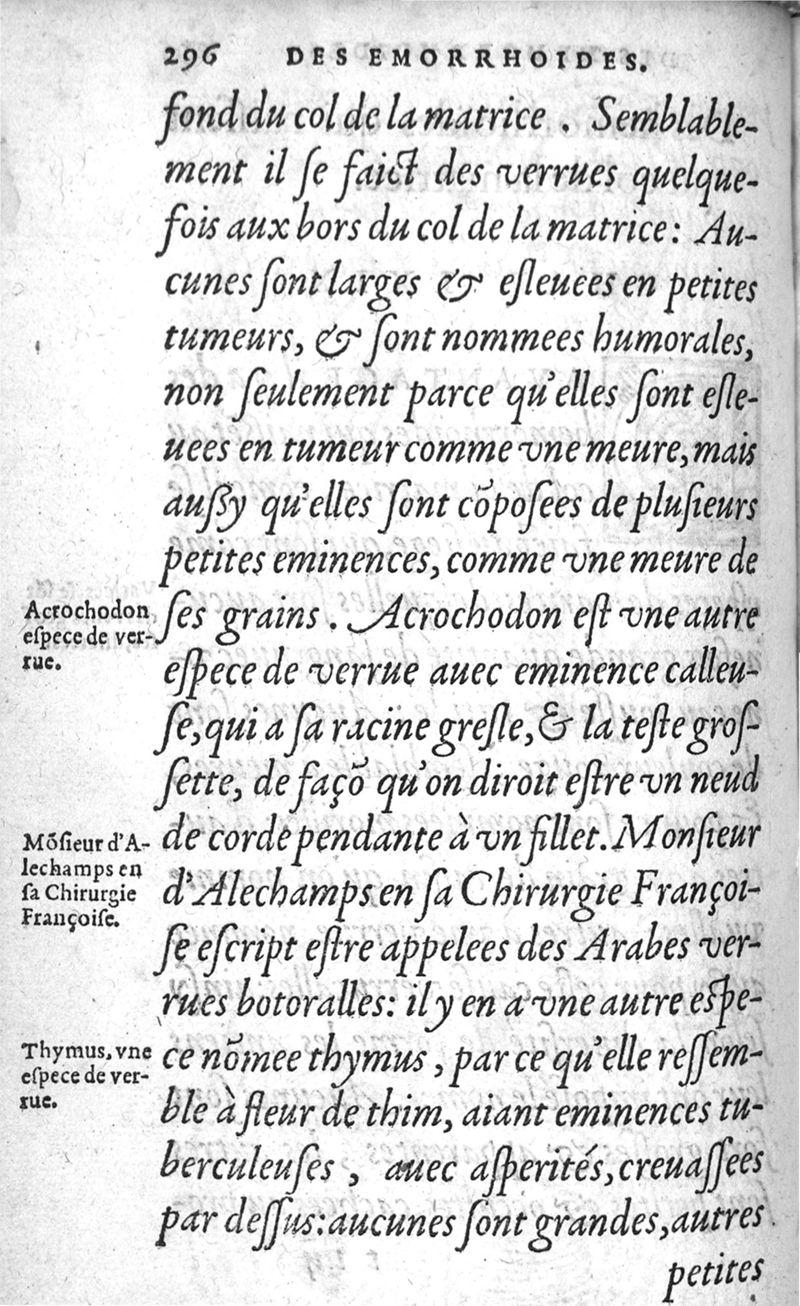 296 DES EMORRHOIDES.
fond du col de la matrice . Semblable-
ment il ſe faict des verrues quelque-
fois aux bors du col de la matrice: Au-
cunes ſont larges & eſleuees en petites
tumeurs, & ſont nommees humorales,
non ſeulement parce qu'elles ſont eſle-
uees en tumeur comme vne meure, mais
auſſy qu'elles ſont cõpoſees de pluſieurs
petites eminences, comme vne meure de
ſes grains . Acrochodon eſt vne autre
eſpece de verrue auec eminence calleu-
ſe, qui a ſa racine greſle, & la teſte groſ-
ſette, de façõ qu'on diroit eſtre vn neud
de corde pendante à vn fillet. Monſieur
d'Alechamps en ſa Chirurgie Françoi-
ſe eſcript eſtre appelees des Arabes ver-
rues botoralles: il y en a vne autre eſpe-
ce nõmee thymus, par ce qu'elle reſſem-
ble à fleur de thim, aiant eminences tu-
berculeuſes , auec aſperités, creuaſſees
par deſſus: aucunes ſont grandes, autres
petites
Acrochodon
eſpece de ver-
rue.
Mõſieur d'A-
lechamps en
ſa Chirurgie
Françoiſe.
Thymus, vne
eſpece de ver-
rue.